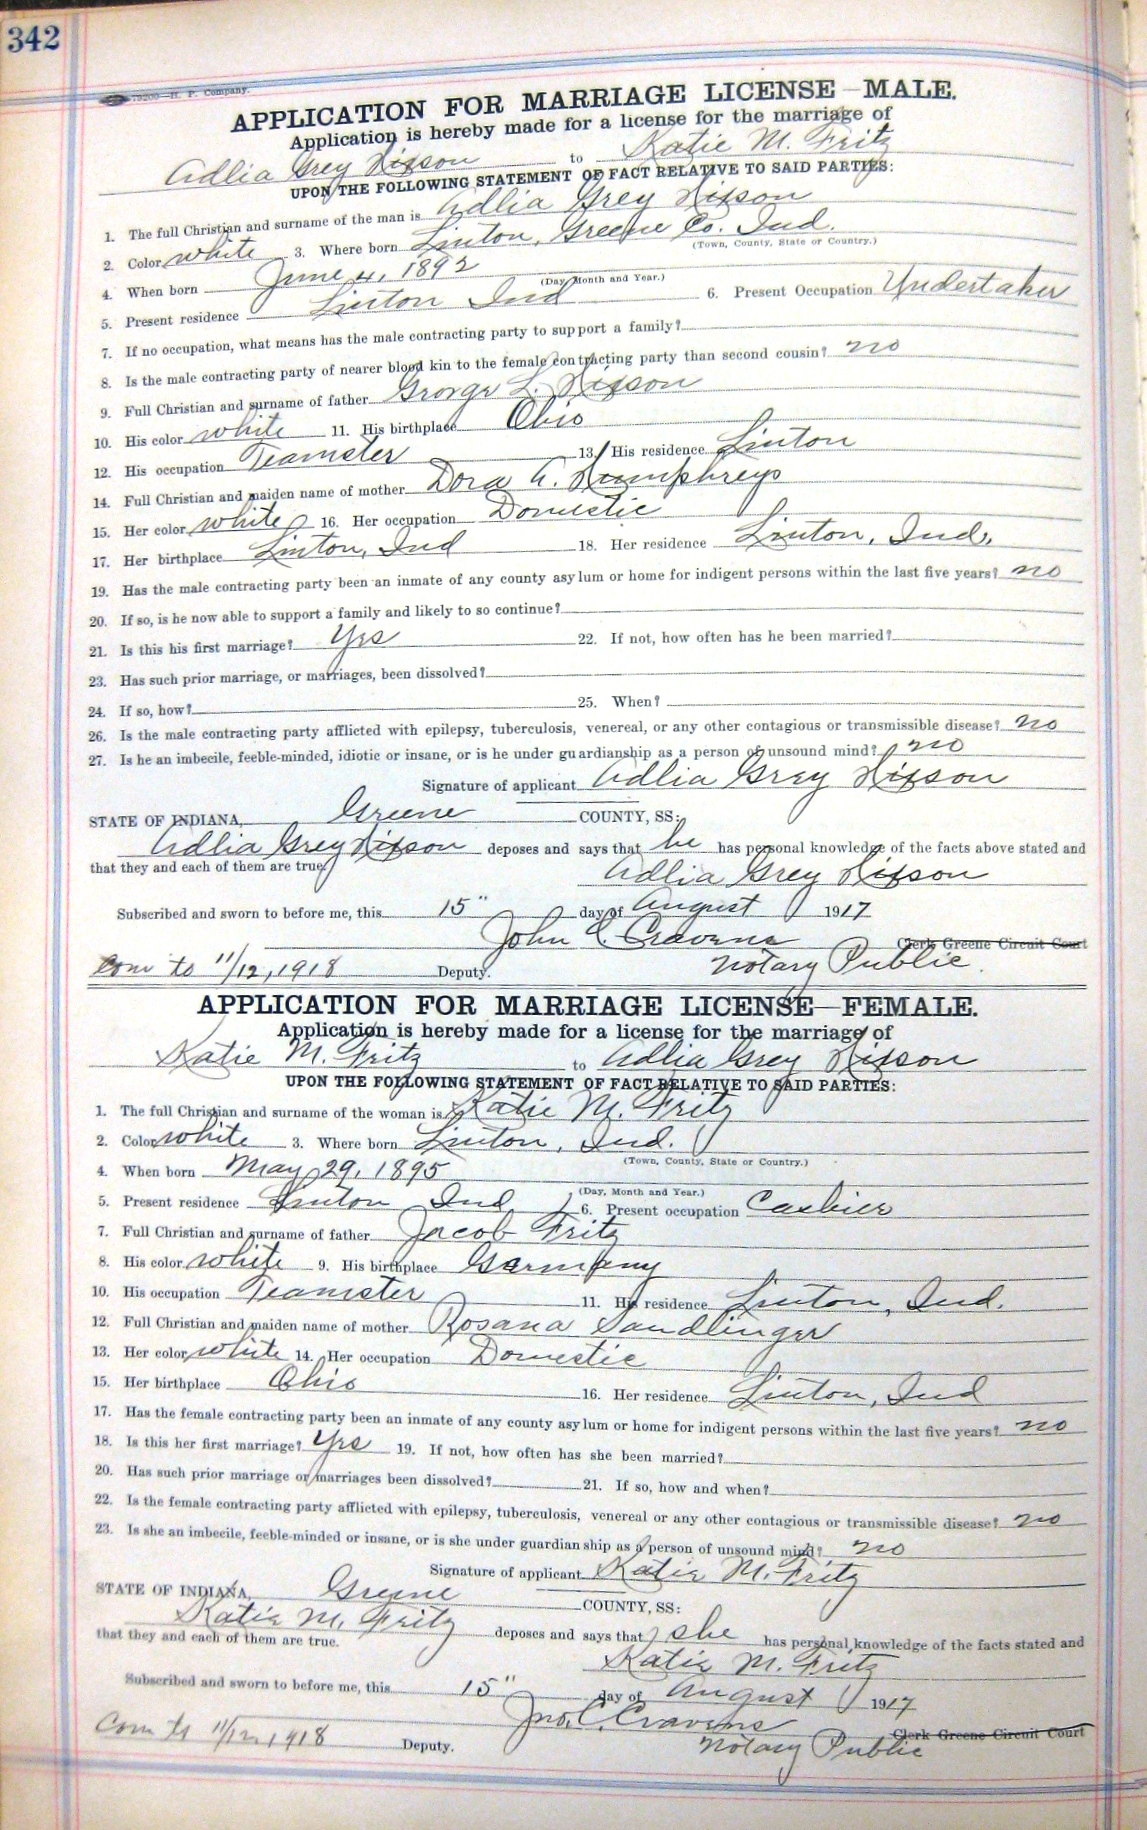 342
79209—H. P. Company.
APPLICATION FOR MARRIAGE LICENSE—MALE.
Application is hereby made for a license for the marriage of
Adlia Grey Nixson to Katie M. Fritz
UPON THE FOLLOWING STATEMENT OF FACT RELATIVE TO SAID PARTIES:
1. The full Christian and surname of the man is Adlia Grey Nixson
2. Color white 3. Where born Linton, Greene Co. Ind.
(Town, County, State or Country.)
4. When born June 4, 1892
(Day, Month and Year.)
5. Present residence Linton Ind 6. Present Occupation Undertaker
7. If no occupation, what means has the male contracting party to support a family?
8. Is the male contracting party of nearer blood kin to the female contracting party than second cousin? no
9. Full Christian and surname of father George L. Nixson
10. His color white 11. His birthplace Ohio
12. His occupation Teamster 13. His residence Linton
14. Full Christian and maiden name of mother Dora A. Humphreys
15. Her color white 16. Her occupation Domestic
17. Her birthplace Linton, Ind 18. Her residence Linton, Ind.
19. Has the male contracting party been an inmate of any county asylum or home for indigent persons within the last five years? no
20. If so, is he now able to support a family and likely to so continue?
21. Is this his first marriage? Yes 22. If not, how often has he been married?
23. Has such prior marriage, or marriages, been dissolved?
24. If so, how? 25. When?
26. Is the male contracting party afflicted with epilepsy, tuberculosis, venereal, or any other contagious or transmissible disease? no
27. Is he an imbecile, feeble-minded, idiotic or insane, or is he under guardianship as a person of unsound mind? no
Signature of applicant Adlia Grey Nixson
STATE OF INDIANA, Greene COUNTY, SS:
Adlia Grey Nixson deposes and says that he has personal knowledge of the facts above stated and
that they and each of them are true.
Adlia Grey Nixson
Subscribed and sworn to before me, this 15" day of August 1917
John C. Cravens Clerk Greene Circuit Court
Com to 11/12, 1918 Deputy. Notary Public.
APPLICATION FOR MARRIAGE LICENSE—FEMALE.
Application is hereby made for a license for the marriage of
Katie M. Fritz to Adlia Grey Nixson
UPON THE FOLLOWING STATEMENT OF FACT RELATIVE TO SAID PARTIES:
1. The full Christian and surname of the woman is Katie M. Fritz
2. Color white 3. Where born Linton, Ind.
(Town, County, State or Country.)
4. When born May 29, 1895
(Day, Month and Year.)
5. Present residence Linton Ind 6. Present occupation Cashier
7. Full Christian and surname of father Jacob Fritz
8. His color white 9. His birthplace Germany
10. His occupation Teamster 11. His residence Linton, Ind.
12. Full Christian and maiden name of mother Rosana Sandlinger
13. Her color white 14. Her occupation Domestic
15. Her birthplace Ohio 16. Her residence Linton, Ind
17. Has the female contracting party been an inmate of any county asylum or home for indigent persons within the last five years? no
18. Is this her first marriage? Yes 19. If not, how often has she been married?
20. Has such prior marriage or marriages been dissolved? 21. If so, how and when?
22. Is the female contracting party afflicted with epilepsy, tuberculosis, venereal or any other contagious or transmissible disease? no
23. Is she an imbecile, feeble-minded or insane, or is she under guardianship as a person of unsound mind? no
Signature of applicant Katie M. Fritz
STATE OF INDIANA, Greene COUNTY, SS:
Katie M. Fritz deposes and says that she has personal knowledge of the facts stated and
that they and each of them are true.
Katie M. Fritz
Subscribed and sworn to before me, this 15" day of August 1917
Jno. C. Cravens Clerk Greene Circuit Court
Com to 11/12, 1918 Deputy. Notary Public